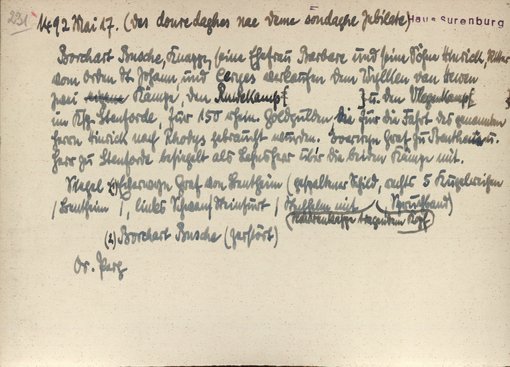 231 1492 Mai 17. (des donredaghes nae deme sondaghe Jubilate) Haus Surenburg
Borchart Busche, Knappe, seine Ehefrau Barbare und sein Sohn Hinrich, Ritter
vom Orden St. Johann, und verkaufen dem Wyllen van
zwei Kämpe, den Rudekamp [ ] u. den Vlegenkamp [ ]
im Ksp. Stenforde, für 150 rhein. Goldgulden die für die Fahrt des genannten
Herrn Hinrich nach Rhodys gebraucht wurden. Everwyn Graf zu Benthem u.
Herr zu Stenforde besiegelt als Lehnsherr über die beiden Kämpe mit.
Siegel 1) Everwyn Graf von Bentheim (gespaltener Schild, rechts 5 Kugelreihen
/Bentheim/, links Schwan Steinfurt / Stechhelm mit / (Spruchband)
tragendem Kopf
(2) Borchart Busche (zerstört)
Or. Perg